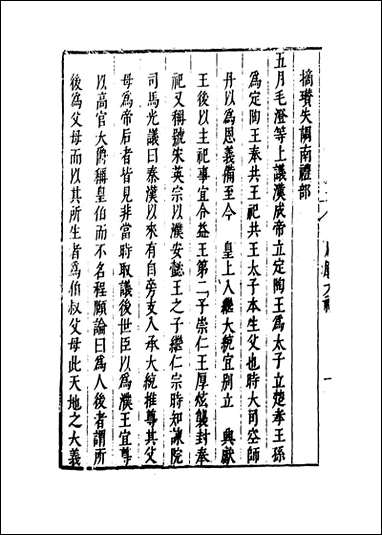 摘瓚失調南禮部
五月毛澄等上議漢成帝立定陶王為太子立楚孝王孫
為定陶王奉共王祀共王太子本生父也時大司空師
丹以為恩義備至今 皇上入繼大統宜別立 興獻
王後以主祀事宜令益王第二子崇仁王厚炫襲封奉
祀又稱號宋英宗以濮安懿王之子繼仁宗時知諫院
司馬光議曰秦漢以來有自旁支入承大統推尊其父
母為帝后者皆見非當時取議後世臣以為濮王宜尊
以高官大爵稱皇伯而不名程頤論曰為人後者謂所
後為父母而以其所生者為伯叔父母此天地之大義
一